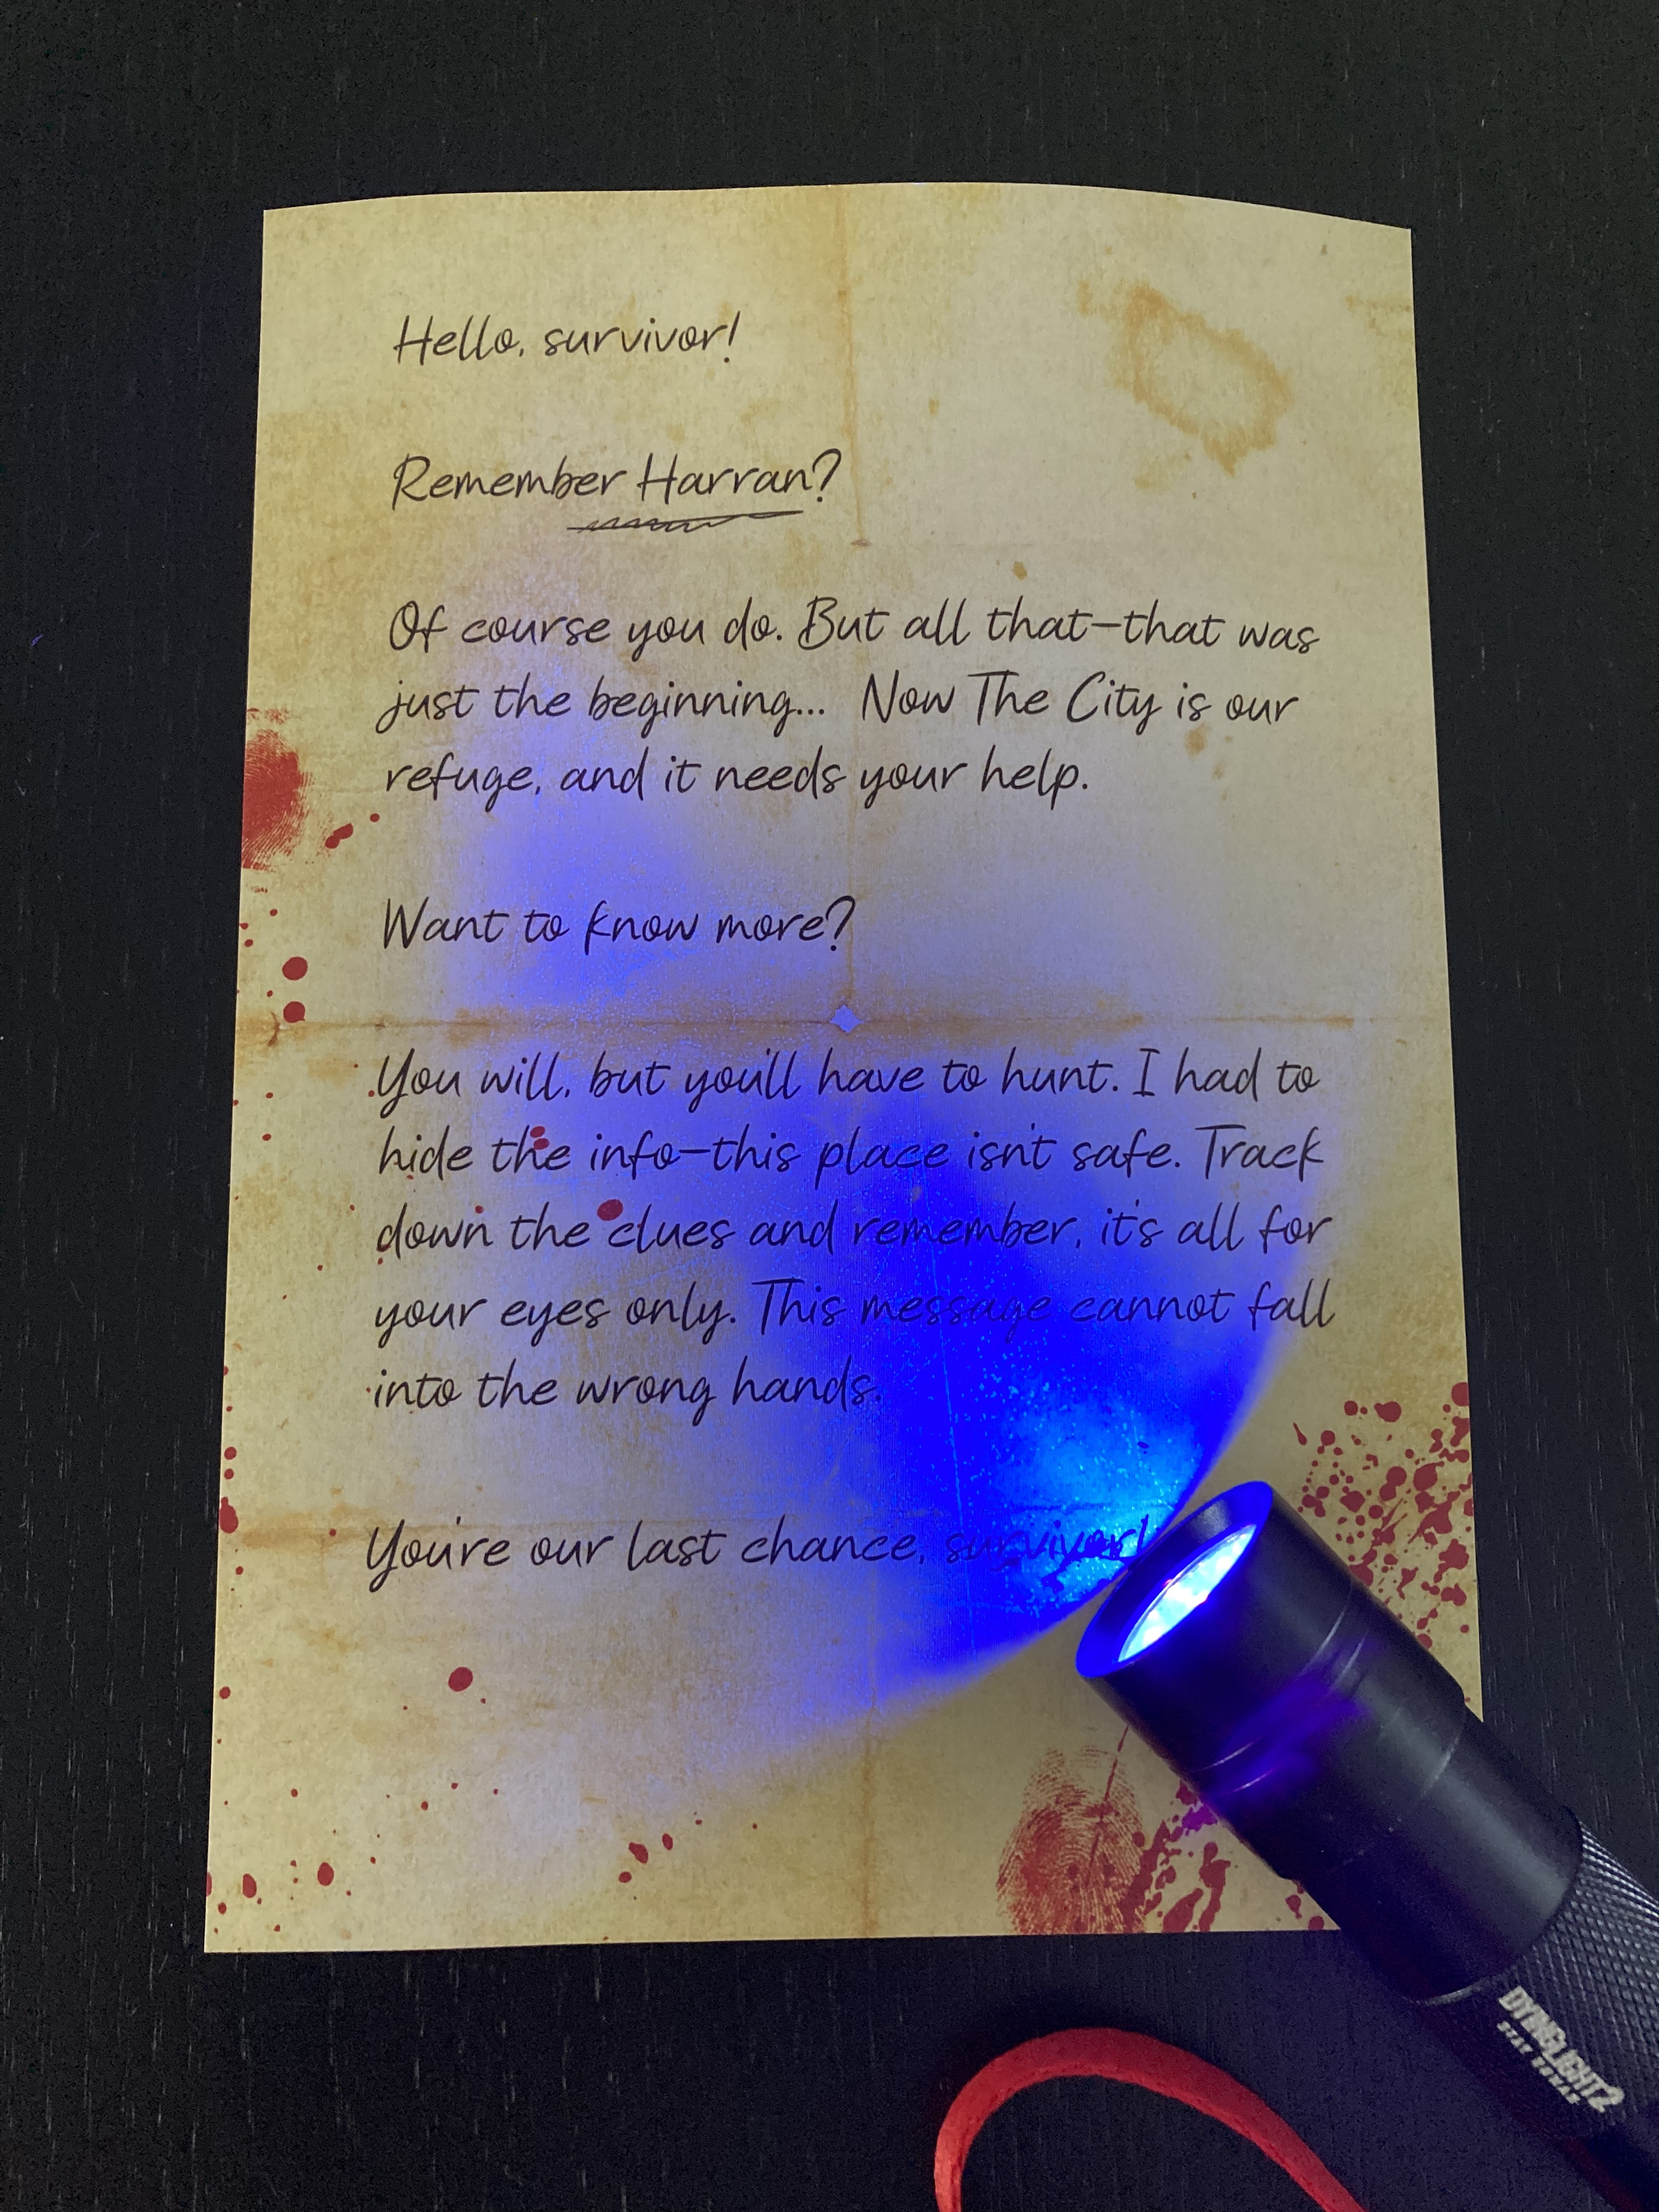 Hello, survivor!
Remember Harran?
Of course you do. But all that—that was
just the beginning... Now The City is our
refuge, and it needs your help.
Want to know more?
You will, but you'll have to hunt. I had to
hide the info—this place isn't safe. Track
down the clues and remember, it's all for
your eyes only. This message cannot fall
into the wrong hands.
You're our last chance, survivor!
DYING LIGHT 2
STAY HUMAN